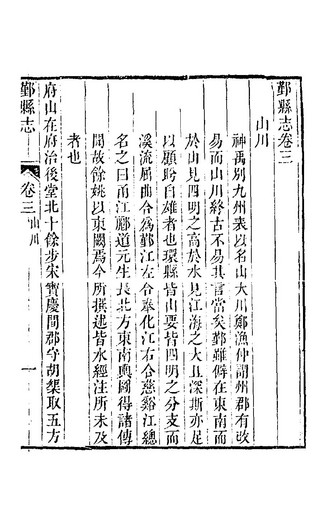 鄞縣志卷三
山川
神禹別九州表以名山大川鄭漁仲謂州郡有改
易而山川終古不易其言當矣鄞雖僻在東南而
於山見四明之高於水見江海之大且深斯亦足
以顧盻自雄者也環縣皆山要皆四明之分支而
溪流屈曲合為鄞江左合奉化江右合慈谿江總
名之曰甬江酈道元生長北方東南輿圖得諸傳
聞故餘姚以東闕焉今所撰述皆水經注所未及
者也
府山在府治後堂北十餘步宋寶慶間郡守胡榘取五方
鄞縣志
卷三 山川
一